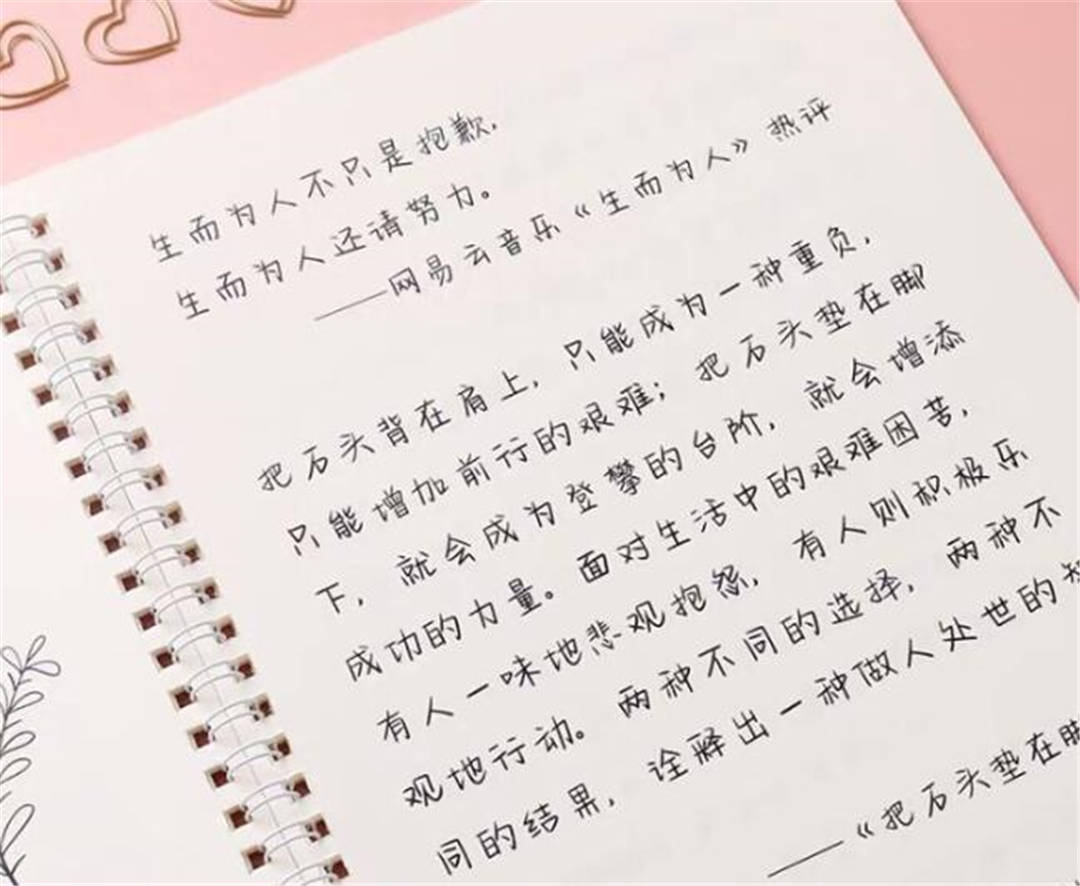 生而为人不只是抱歉，
生而为人还请努力。
——网易云音乐《生而为人》热评
把石头背在肩上，只能成为一种重负，
只能增加前行的艰难；把石头垫在脚
下，就会成为登攀的台阶，就会增添
成功的力量。面对生活中的艰难困苦，
有人一味地悲观抱怨，有人则积极乐
观地行动。两种不同的选择，两种不
同的结果，诠释出一种做人处世的
——《把石头垫在脚